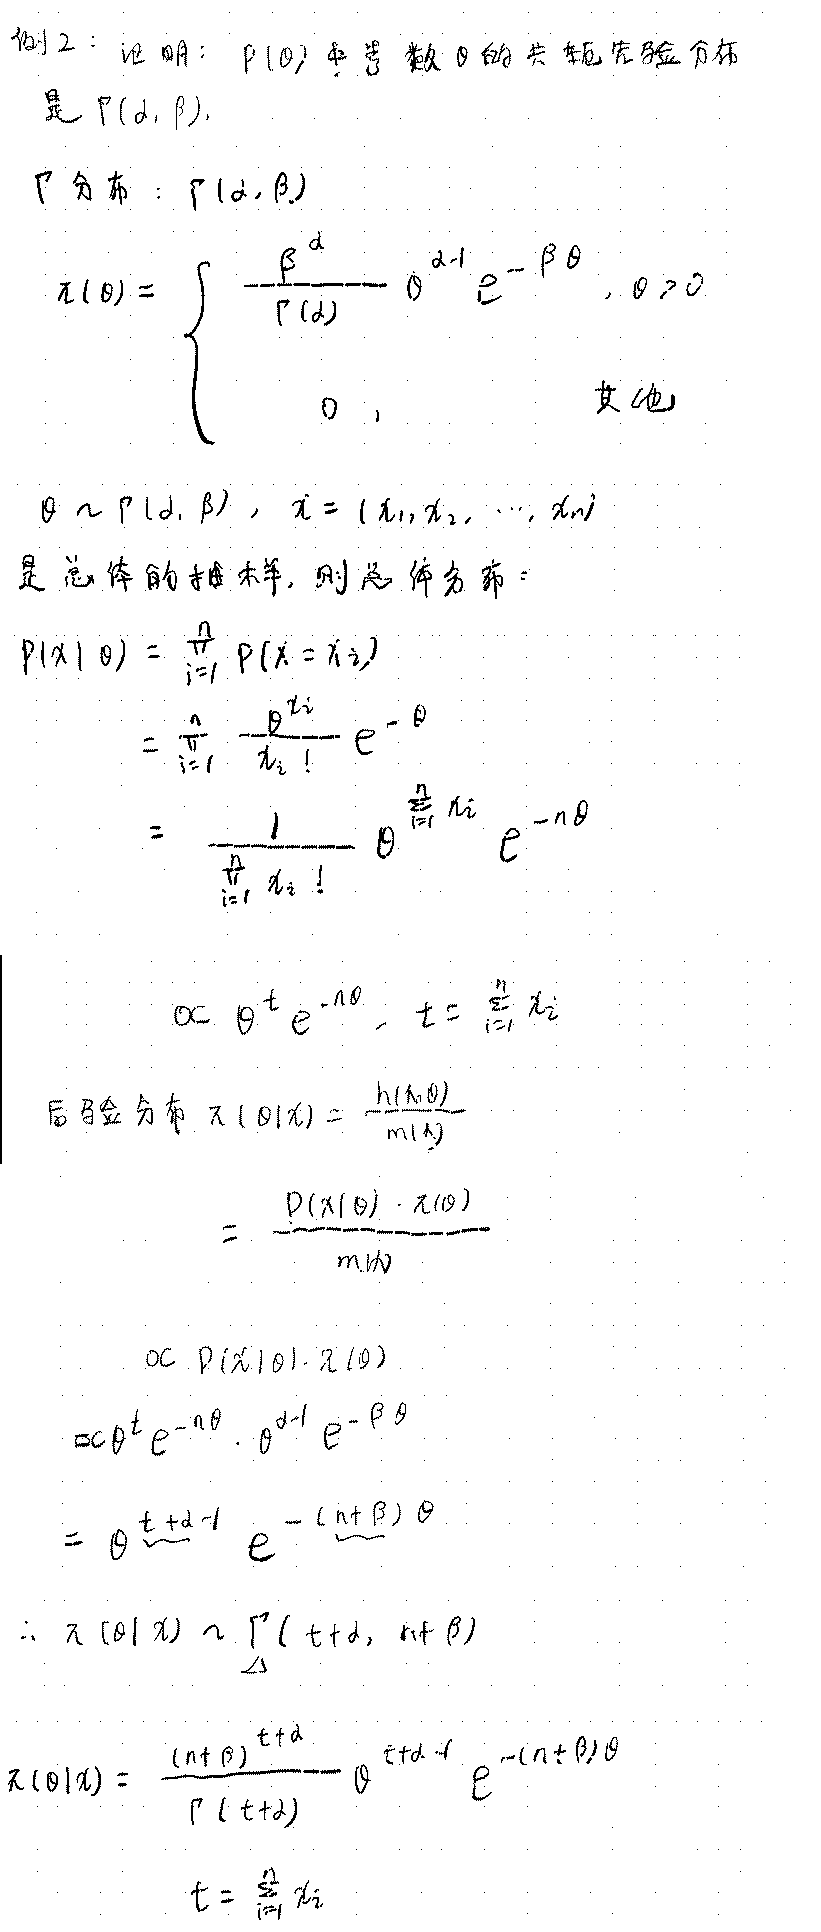 例2: 证明: P(θ)中参数θ的共轭先验分布
是Γ(α, β).
Γ分布: Γ(α, β)
π(θ) = { β^α / Γ(α) θ^(α-1) e^(-βθ), θ>0
0, 其他
θ ~ Γ(α, β), x = (x₁, x₂, …, xₙ)
是总体的抽样, 则总体分布:
P(x|θ) = ∏_{i=1}^n P(X = xᵢ)
= ∏_{i=1}^n θ^(xᵢ) / xᵢ! e^(-θ)
= 1 / ∏_{i=1}^n xᵢ! θ^(∑_{i=1}^n xᵢ) e^(-nθ)
∝ θ^t e^(-nθ), t = ∑_{i=1}^n xᵢ
后验分布 π(θ|x) = h(x,θ) / m(x)
= P(x|θ)·π(θ) / m(x)
∝ P(x|θ)·π(θ)
∝ θ^t e^(-nθ) · θ^(α-1) e^(-βθ)
= θ^(t+α-1) e^(-(n+β)θ)
∴ π(θ|x) ~ Γ(t+α, n+β)
π(θ|x) = (n+β)^(t+α) / Γ(t+α) θ^(t+α-1) e^(-(n+β)θ)
t = ∑_{i=1}^n xᵢ